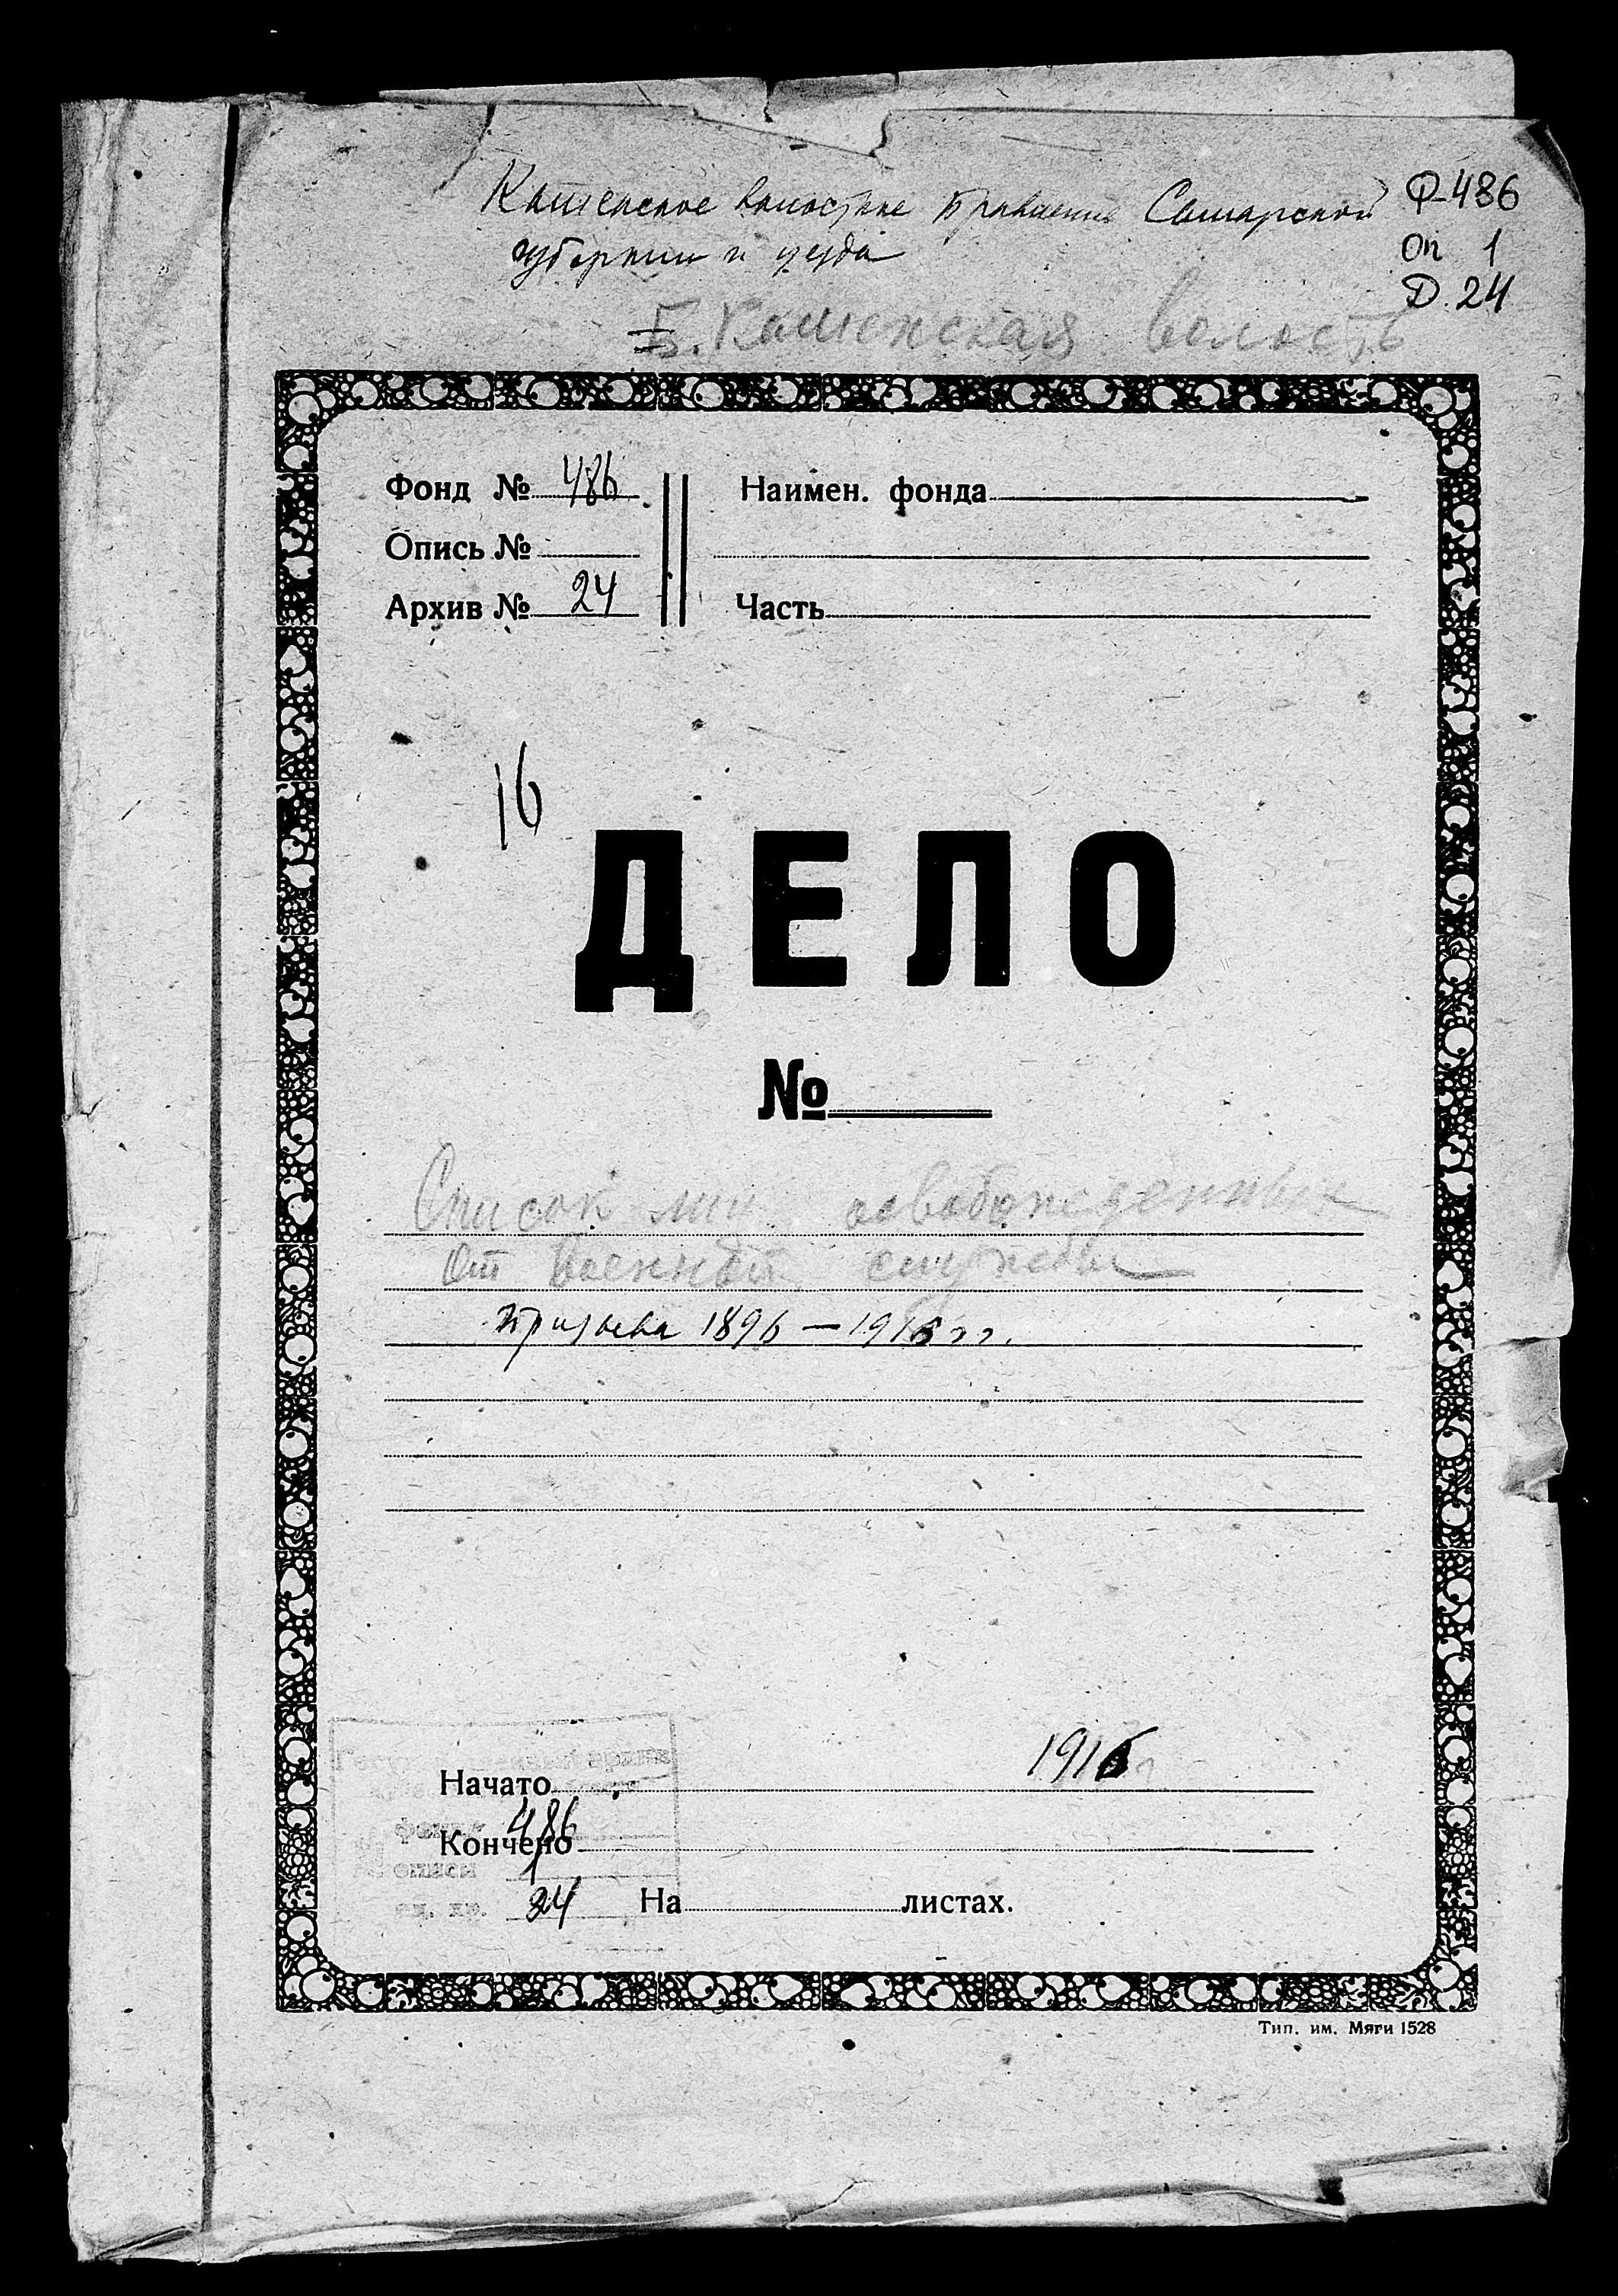 Каменское волостное Правление Самарской
губернии и уезда
Ф-486
Оп 1
Д. 24
Б. Каменская волость
Фонд № 486
Опись №
Архив № 24
Наимен. фонда
Часть
16
ДЕЛО
№
Список лиц освобожденных
От военной службы
призыва 1896 — 1916 гг.
Начато 1916
Кончено
фонд 486
описи 1
ед. хр. 24
На листах.
Тип. им. Мяги 1528